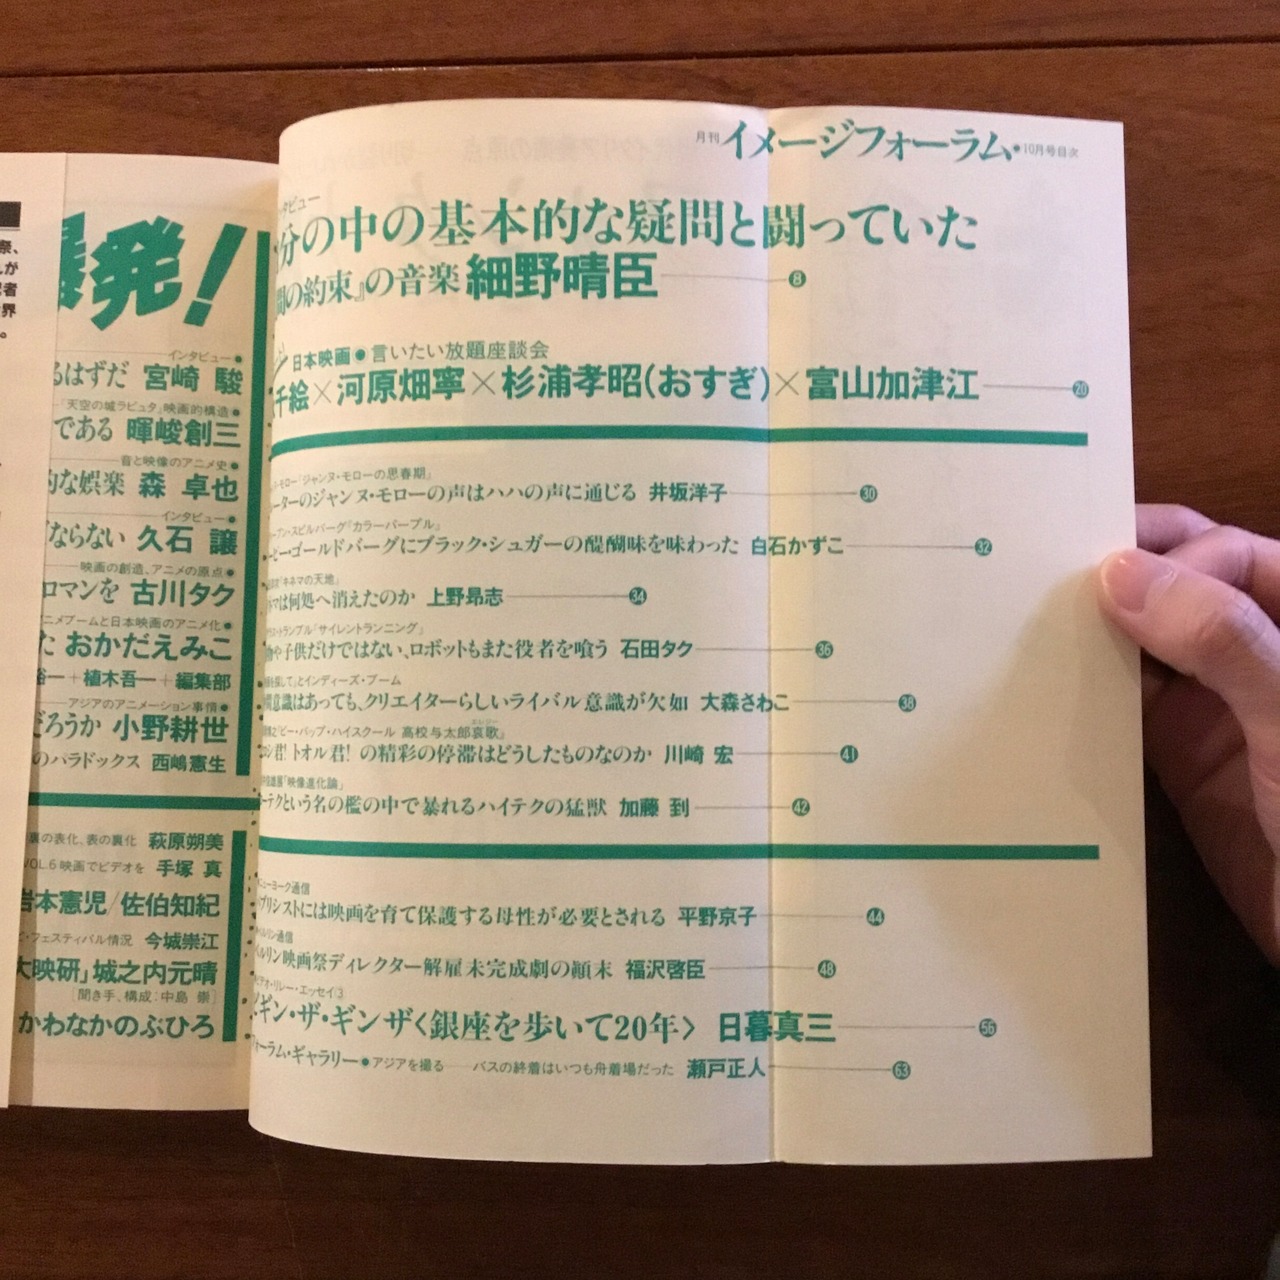 月刊イメージフォーラム●10月号目次
タビュー
分の中の基本的な疑問と闘っていた
間の約束』の音楽 細野晴臣 8
日本映画●言いたい放題座談会
千絵×河原畑寧×杉浦孝昭(おすぎ)×富山加津江 20
モロー『ジャンヌ・モローの思春期』
ーターのジャンヌ・モローの声はハハの声に通じる 井坂洋子 30
ーブン・スピルバーグ『カラーパープル』
ーピー・ゴールドバーグにブラック・シュガーの醍醐味を味わった 白石かずこ 32
『キネマの天地』
マは何処へ消えたのか 上野昻志 34
トランブル『サイレントランニング』
物や子供だけではない、ロボットもまた役者を喰う 石田タク 36
を探して』とインディーズ・ブーム
意識はあっても、クリエイターらしいライバル意識が欠如 大森さわこ 38
『ビー・バップ・ハイスクール 高校与太郎哀歌』
エレジー
君! トオル君! の精彩の停滞はどうしたものなのか 川崎 宏 41
展『映像進化論』
ーテクという名の檻の中で暴れるハイテクの猛獣 加藤 到 42
ニューヨーク通信
プリシストには映画を育て保護する母性が必要とされる 平野京子 44
ベルリン通信
ベルリン映画祭ディレクター解雇未完成劇の顚末 福沢啓臣 48
ビデオ・リレー・エッセイ③
ギン・ザ・ギンザ〈銀座を歩いて20年〉 日暮真三 56
フォーラム・ギャラリー●アジアを撮る バスの終着はいつも舟着場だった 瀬戸正人 63
爆発!
インタビュー●
るはずだ 宮崎 駿
『天空の城ラピュタ』映画的構造●
である 暉峻創三
音と映像のアニメ史●
的な娯楽 森 卓也
インタビュー●
ならない 久石 譲
映画の創造、アニメの原点●
ロマンを 古川タク
ニメブームと日本映画のアニメ化●
た おかだえみこ
裕一+植木吾一+編集部
アジアのアニメーション事情●
だろうか 小野耕世
のパラドックス 西嶋憲生
裏の表化、表の裏化 萩原朔美
VOL.6 映画でビデオを 手塚 真
岩本憲児/佐伯知紀
・フェスティバル情況 今城崇江
大映研」城之内元晴
[聞き手、構成:中島 崇]
かわなかのぶひろ
祭、
が
者
界
。